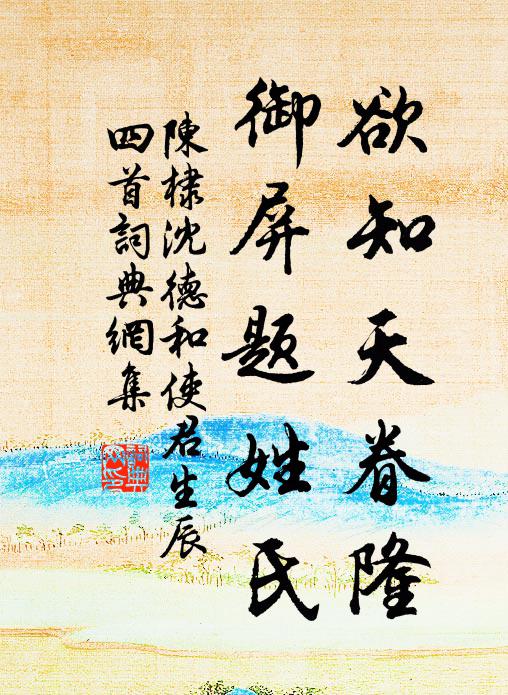 欲知天眷隆
御屏題姓氏
陳棣沈德和使君生辰
四首詞典網集